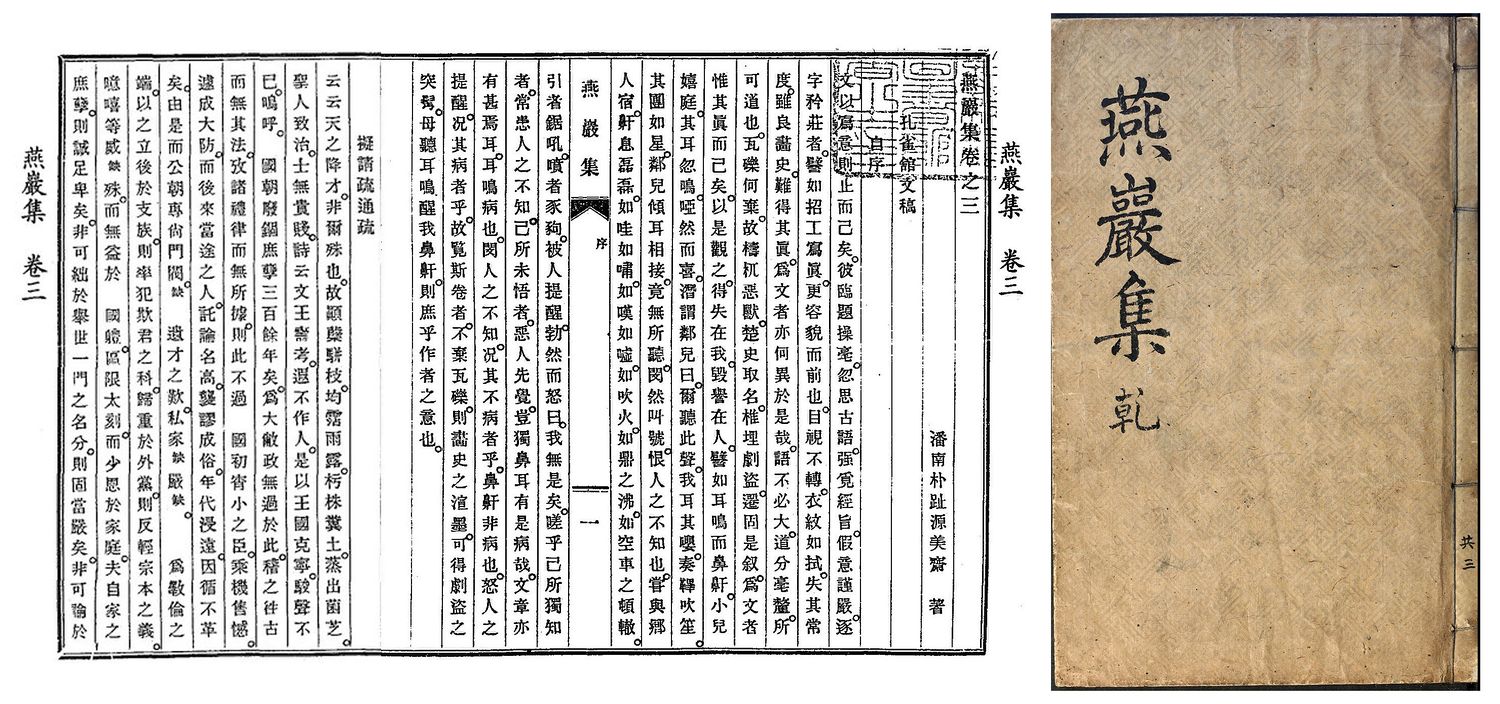 燕巖集 卷三
燕巖集卷之三
潘南朴趾源美齋 著
孔雀館文稿
自序
文以寫意則止而已矣。彼臨題操毫。忽思古語。强覓經旨。假意謹嚴。逐
字矜莊者。譬如招工寫眞。更容貌而前也。目視不轉。衣紋如拭。失其常
度。雖良畵史。難得其眞。爲文者亦何異於是哉。語不必大。道分毫釐。所
可道也。瓦礫何棄。故檮杌惡獸。楚史取名。椎埋劇盜。遷固是叙。爲文者
惟其眞而已矣。以是觀之。得失在我。毀譽在人。譬如耳鳴而鼻鼾。小兒
嬉庭。其耳忽鳴。啞然而喜。潛謂鄰兒曰。爾聽此聲。我耳其嚶。奏鞸吹笙。
其團如星。鄰兒傾耳相接。竟無所聽。閔然叫號。恨人之不知也。嘗與鄕
人宿。鼾息磊磊。如哇如嘯。如嘆如噓。如吹火。如鼎之沸。如空車之頓轍。
燕巖集 序 一
引者鋸吼。噴者豕狗。被人提醒。勃然而怒曰。我無是矣。嗟乎己所獨知
者。常患人之不知。己所未悟者。惡人先覺。豈獨鼻耳有是病哉。文章亦
有甚焉耳。耳鳴病也。閔人之不知。况其不病者乎。鼻鼾非病也。怒人之
提醒。况其病者乎。故覽斯卷者。不棄瓦礫。則畵史之渲墨。可得劇盜之
突鬢。毋聽耳鳴。醒我鼻鼾。則庶乎作者之意也。
擬請疏通疏
云云。天之降才。非爾殊也。故顚蘖騈枝。均霑雨露。朽株糞土。蒸出菌芝。
聖人致治。士無貴賤。詩云文王壽考。遐不作人。是以王國克寧。駿聲不
已。嗚呼。 國朝廢錮庶孼三百餘年矣。爲大敝政無過於此。稽之往古
而無其法。攷諸禮律而無所據。則此不過 國初宵小之臣。乘機售憾。
遽成大防。而後來當途之人。託論名高。襲謬成俗。年代浸遠。因循不革
矣。由是而公朝專尙門閥。缺 遺才之歎。私家缺 嚴缺。 爲斁倫之
端。以之立後於支族。則率犯欺君之科。歸重於外黨。則反輕宗本之義。
噫嘻等威缺 殊。而無益於 國體。區限太刻。而少恩於家庭。夫自家之
庶孼。則誠足卑矣。非可絀於擧世一門之名分。則固當嚴矣。非可論於
燕巖集 卷三
燕巖集 乾
共三